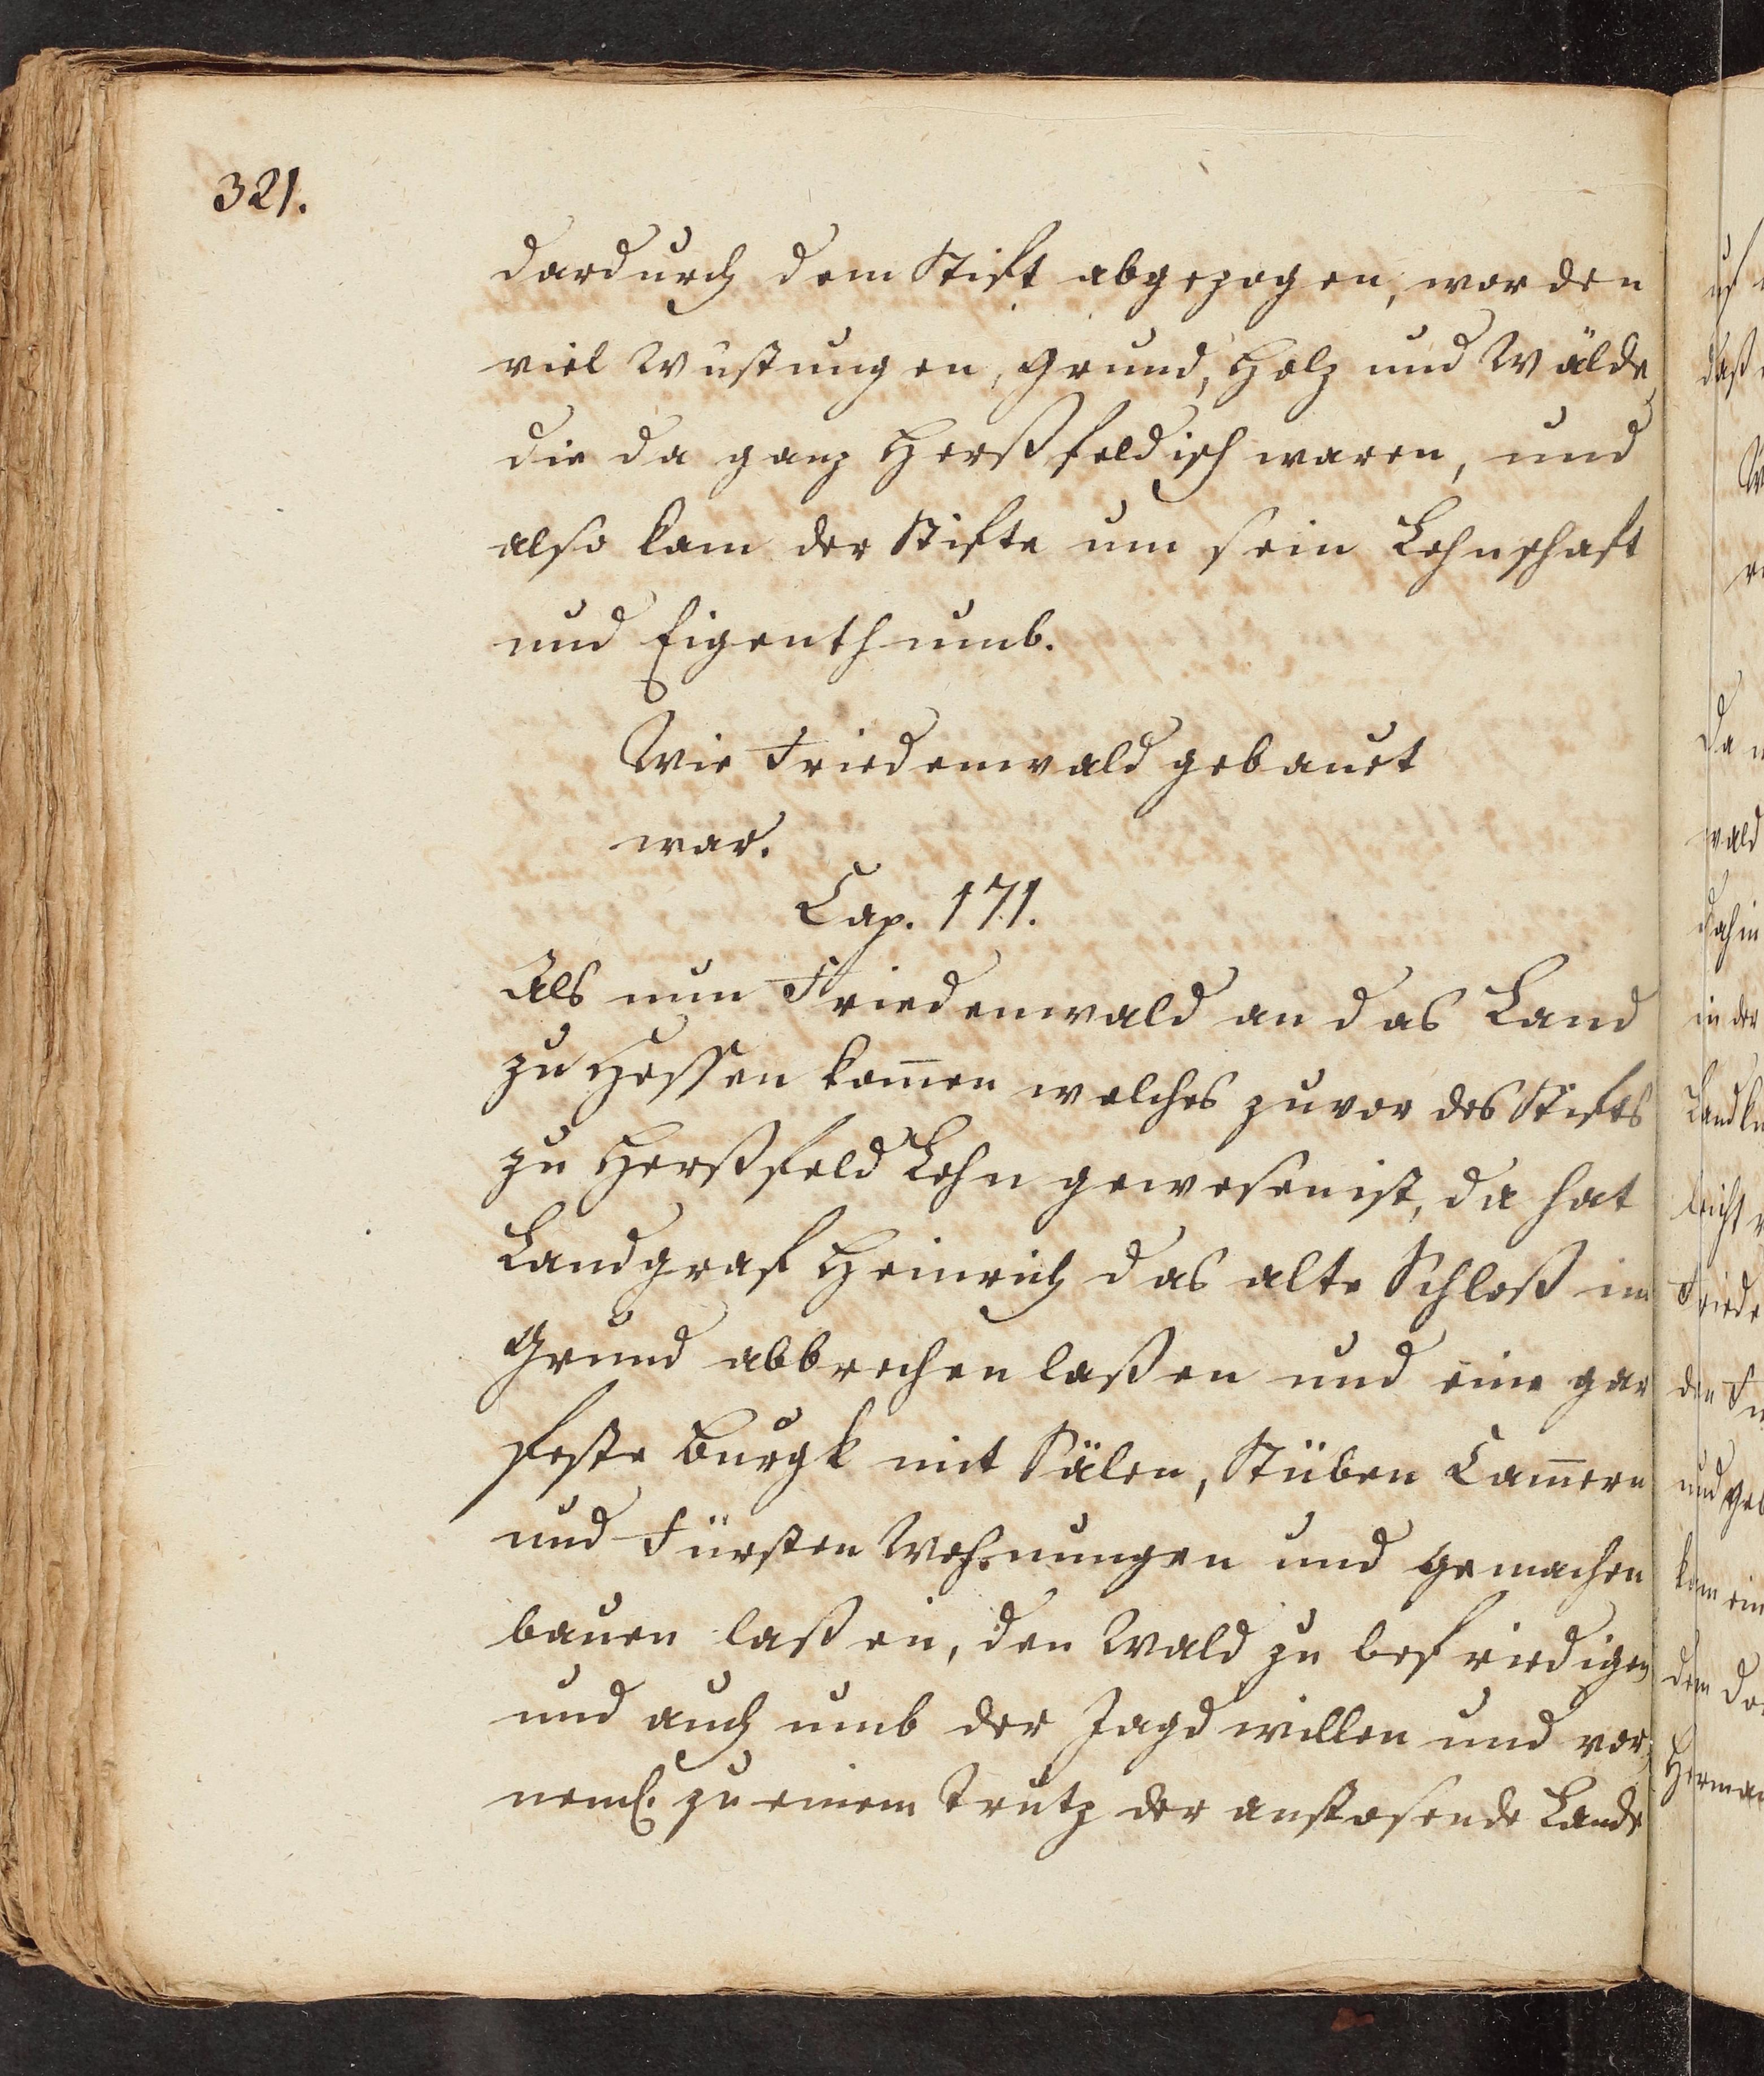 321.
dardurch dem Stift abgezogen, worden
viel Wüstungen, Grund, Holz und Wälde,
die da ganz Herßfeldisch waren, und
also kam der Stifte um sein Lehnschaft
und Eigenthumb.
Wie Friedenwald gebauet
war.
Cap. 171.
Als nun Friedenwald an das Land
zu Hessen kom̅en welches zuvor des Stifts
zu Herßfeld Lehn gewesen ist, da hat
Landgraf Heinrich das alte Schloß im
Grund abbrechen laßen und eine gar
feste Burgk mit Sälen, Stüben Cam̅ern
und Fürsten Wohnungen und gemachen
bauen laßen, den Wald zu befriedigen
und auch umb der Jagd willen und vor¬
neml. zu einem Trutz der anstosende Lande